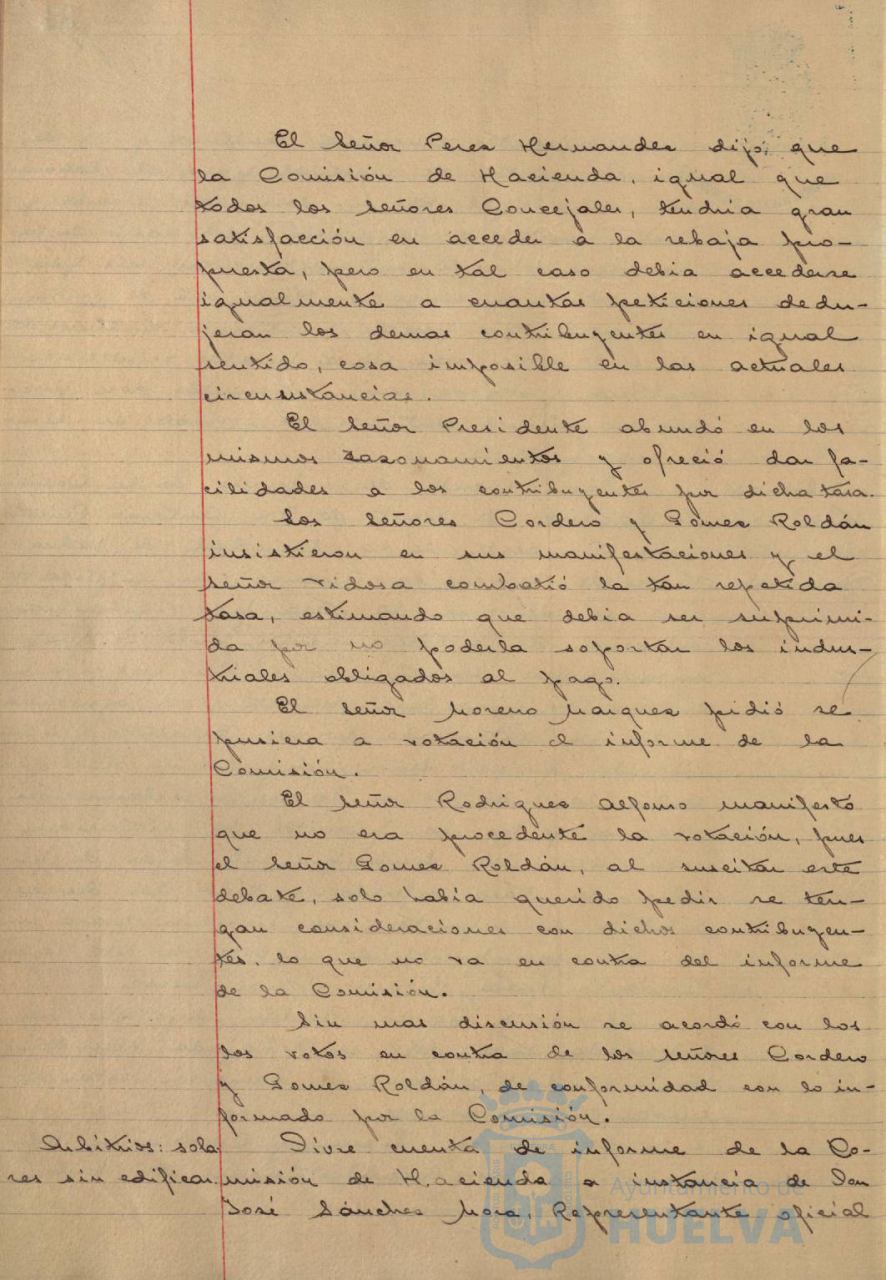 El Señor Perez Hernandez dijo, que
la Comisión de Hacienda, igual que
todos los señores Concejales, tendria gran
satisfacción en acceder a la rebaja pro-
puesta, pero en tal caso debia accederse
igualmente a cuantas peticiones dedu-
jeran los demas contribuyentes en igual
sentido, cosa imposible en las actuales
circunstancias.
El Señor Presidente abundó en los
mismos razonamientos y ofreció dar fa-
cilidades a los contribuyentes por dicha tasa.
Los Señores Cordero y Gomez Roldán
insistieron en sus manifestaciones y el
Señor Vidosa combatió la tan repetida
tasa, estimando que debia ser suprimi-
da por no poderla soportar los indus-
triales obligados al pago.
El Señor Moreno Marquez pidió se
pusiera a votación el informe de la
Comisión.
El Señor Rodriguez Alfonso manifestó
que no era procedente la votación, pues
el Señor Gomez Roldán, al suscitar este
debate, solo habia querido pedir se ten-
gan consideraciones con dichos contribuyen-
tes, lo que no va en contra del informe
de la Comisión.
Sin mas discusión se acordó con los
los votos en contra de los señores Cordero
y Gomez Roldán, de conformidad con lo in-
formado por la Comisión.
Arbitrios: sola
res sin edificar.
Diose cuenta de informe de la Co-
misión de Hacienda a instancia de Don
José Sánchez Mora, Representante oficial
Ayuntamiento de
HUELVA